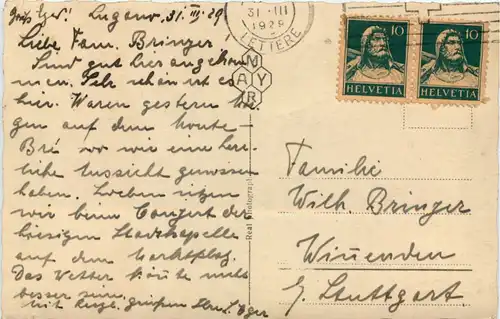 Lugano, 31.III.29
Liebe Fam. Bringer
Sind gut hier angekom-
men. Sehr schön ist es
hier. Waren gestern
auf dem Monte-
Bré wo wir eine herr-
liche Aussicht genossen
haben. Soeben sitzen
wir beim Conzert der
hiesigen Stadtkapelle
auf dem Marktplatz.
Das Wetter könnte nicht
besser sein.
Mit herzl. grüßen
31 III
1929
LETTERE
MAYR
Real Photograph
10
HELVETIA
10
HELVETIA
Familie
Wilh. Bringer
Winnenden
b. Stuttgart.